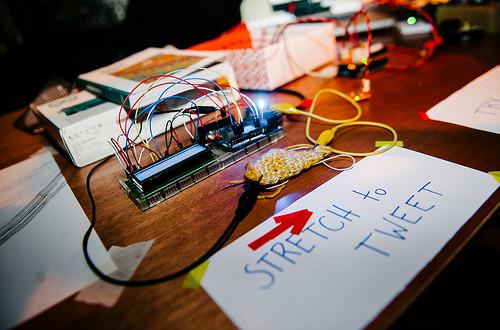 STRETCH to
TWEET